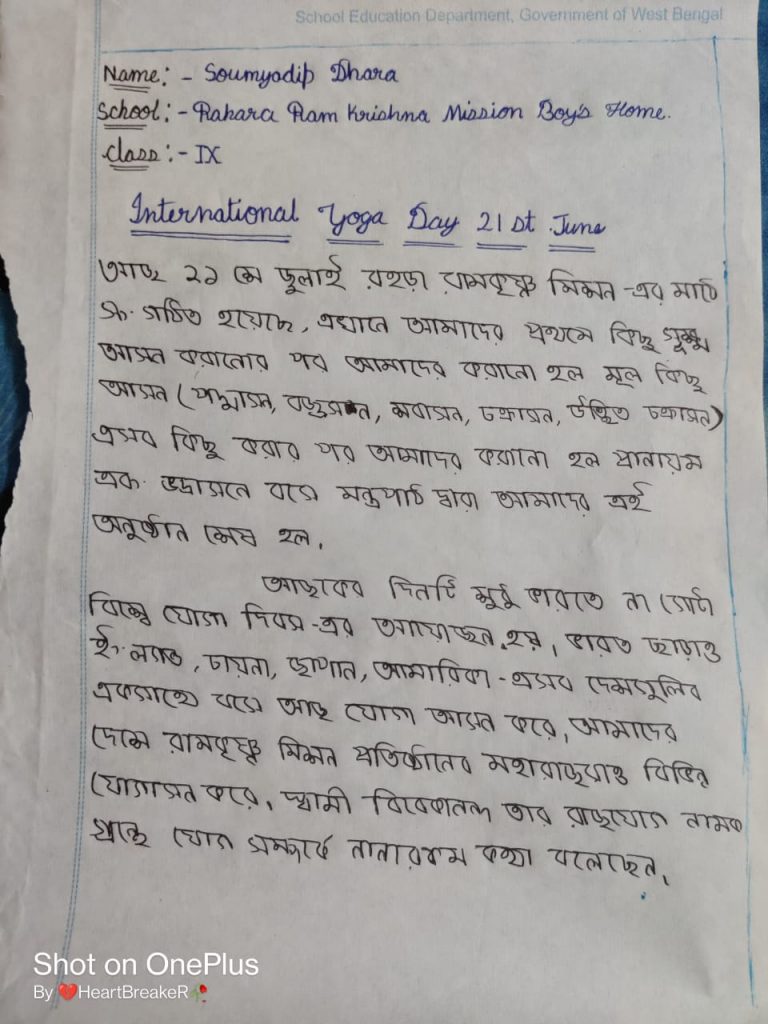 School Education Department, Government of West Bengal
Name: - Soumyadip Dhara
School: - Rahara Ram Krishna Mission Boy's Home.
Class: - IX
International Yoga Day 21st June
আজ ২১ শে জুলাই রহড়া রামকৃষ্ণ মিশন -এর মাঠে
সংগঠিত হয়েছে, এখানে আমাদের প্রথমে কিছু সূক্ষ্ম
আসন করানোর পর আমাদের করানো হল মূল কিছু
আসন (পদ্মাসন, বজ্রাসন, শবাসন, চক্রাসন, উত্থিত চক্রাসন)
এসব কিছু করার পর আমাদের করানো হল প্রানায়ম
এবং ভদ্রাসনে বসে মন্ত্রপাঠ দ্বারা আমাদের এই
অনুষ্ঠান শেষ হল।
আজকের দিনটি শুধু ভারতে না গোটা
বিশ্বে যোগা দিবস -এর আয়োজন হয়। ভারত ছাড়াও
ইংল্যান্ড, চায়না, জাপান, আমেরিকা - এসব দেশগুলির
একসাথে বসে আজ যোগা আসন করে, আমাদের
দেশে রামকৃষ্ণ মিশন প্রতিষ্ঠানের মহারাজরাও বিভিন্ন
যোগাসন করে, স্বামী বিবেকানন্দ তার রাজযোগ নামক
গ্রন্থে যোগ সম্পর্কে নানারকম কথা বলেছেন।
Shot on OnePlus
By ❤️HeartBreakeR🥀